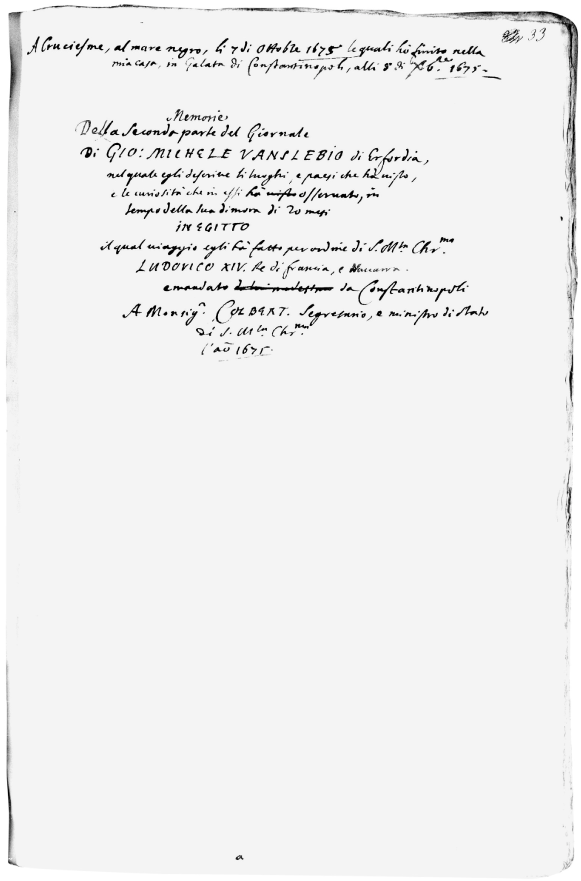 33
A Cruciesme, al mare negro, li 7 di Ottobre 1675 le quali hò finito nella
mia casa, in Galata di Constantinopoli, alli 5 di Xb.re 1675.
Memorie
Della Seconda parte del Giornale
Di GIO: MICHELE VANSLEBIO di Erfordia,
nel quale egli descrive li luoghi, e paesi che hà visto,
e le curiosità che in essi hà visto osservato, in
tempo della sua dimora di 20 mesi
IN EGITTO
il qual viaggio egli hà fatto per ordine di S. M.tà Chr.ma
LUDOVICO XIV. Re di francia, e Navarra.
e mandato da Constantinopoli
A Monsig.r COLBERT. Segretario, e ministro di stato
di S. M.tà Chr.ma
l'aō 1675.
a